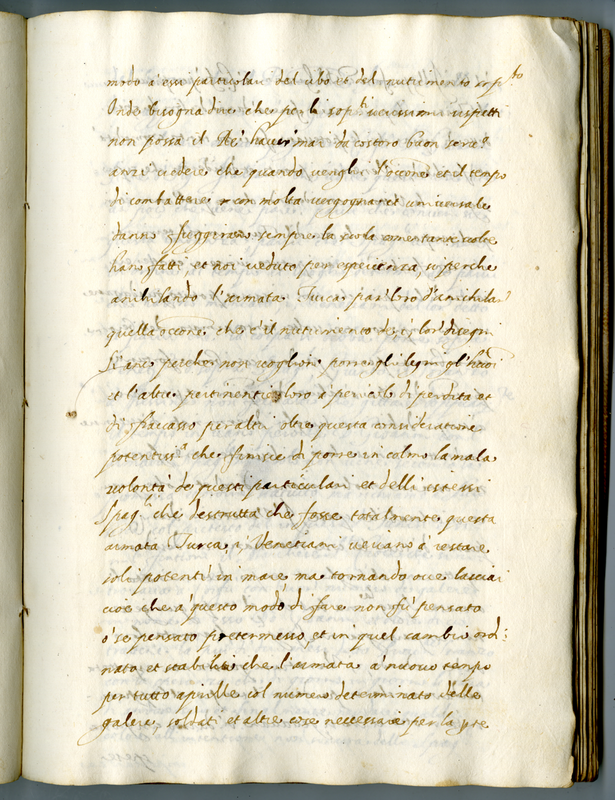 modo à essi particolari del cibo et del nutrimento
Onde bisogna dire che per li sop.ti verissimi rispetti
non possa il Rè haver mai da costoro buon serv.o
anzi vedere che quando venghi l'occ.one et il tempo
di combattere con molta vergogna et universale
danno fuggirano sempre la come tante volte
hano fatti, et noi veduto per esperienza, si perche
anihilando l'armata Turca par loro d'anichilar
quella occ.one che è il nutrimento de i lor disegni
si anc perche non voglion porre gli legni gl'
et l'altre pertinentie loro à pericolo di perdita et
di fracasso per altri oltre questa consideratione
potentiss.a che finisce di porre in colmo la mala
volontà de questi particulari et delli istessi
Spag.li che destrutta che fosse totalmente questa
armata Turca i Venetiani venano à restare
soli potenti in mare ma tornando ove lasciai
dico che à questo modo di fare non fù pensato
ò se pensato pretermesso, et in quel cambio ordi:
nato et stabilito che l'armata à nuovo tempo
per tutto aprille col numero determinato delle
galere, soldati et altre cose necessarie per la p.te